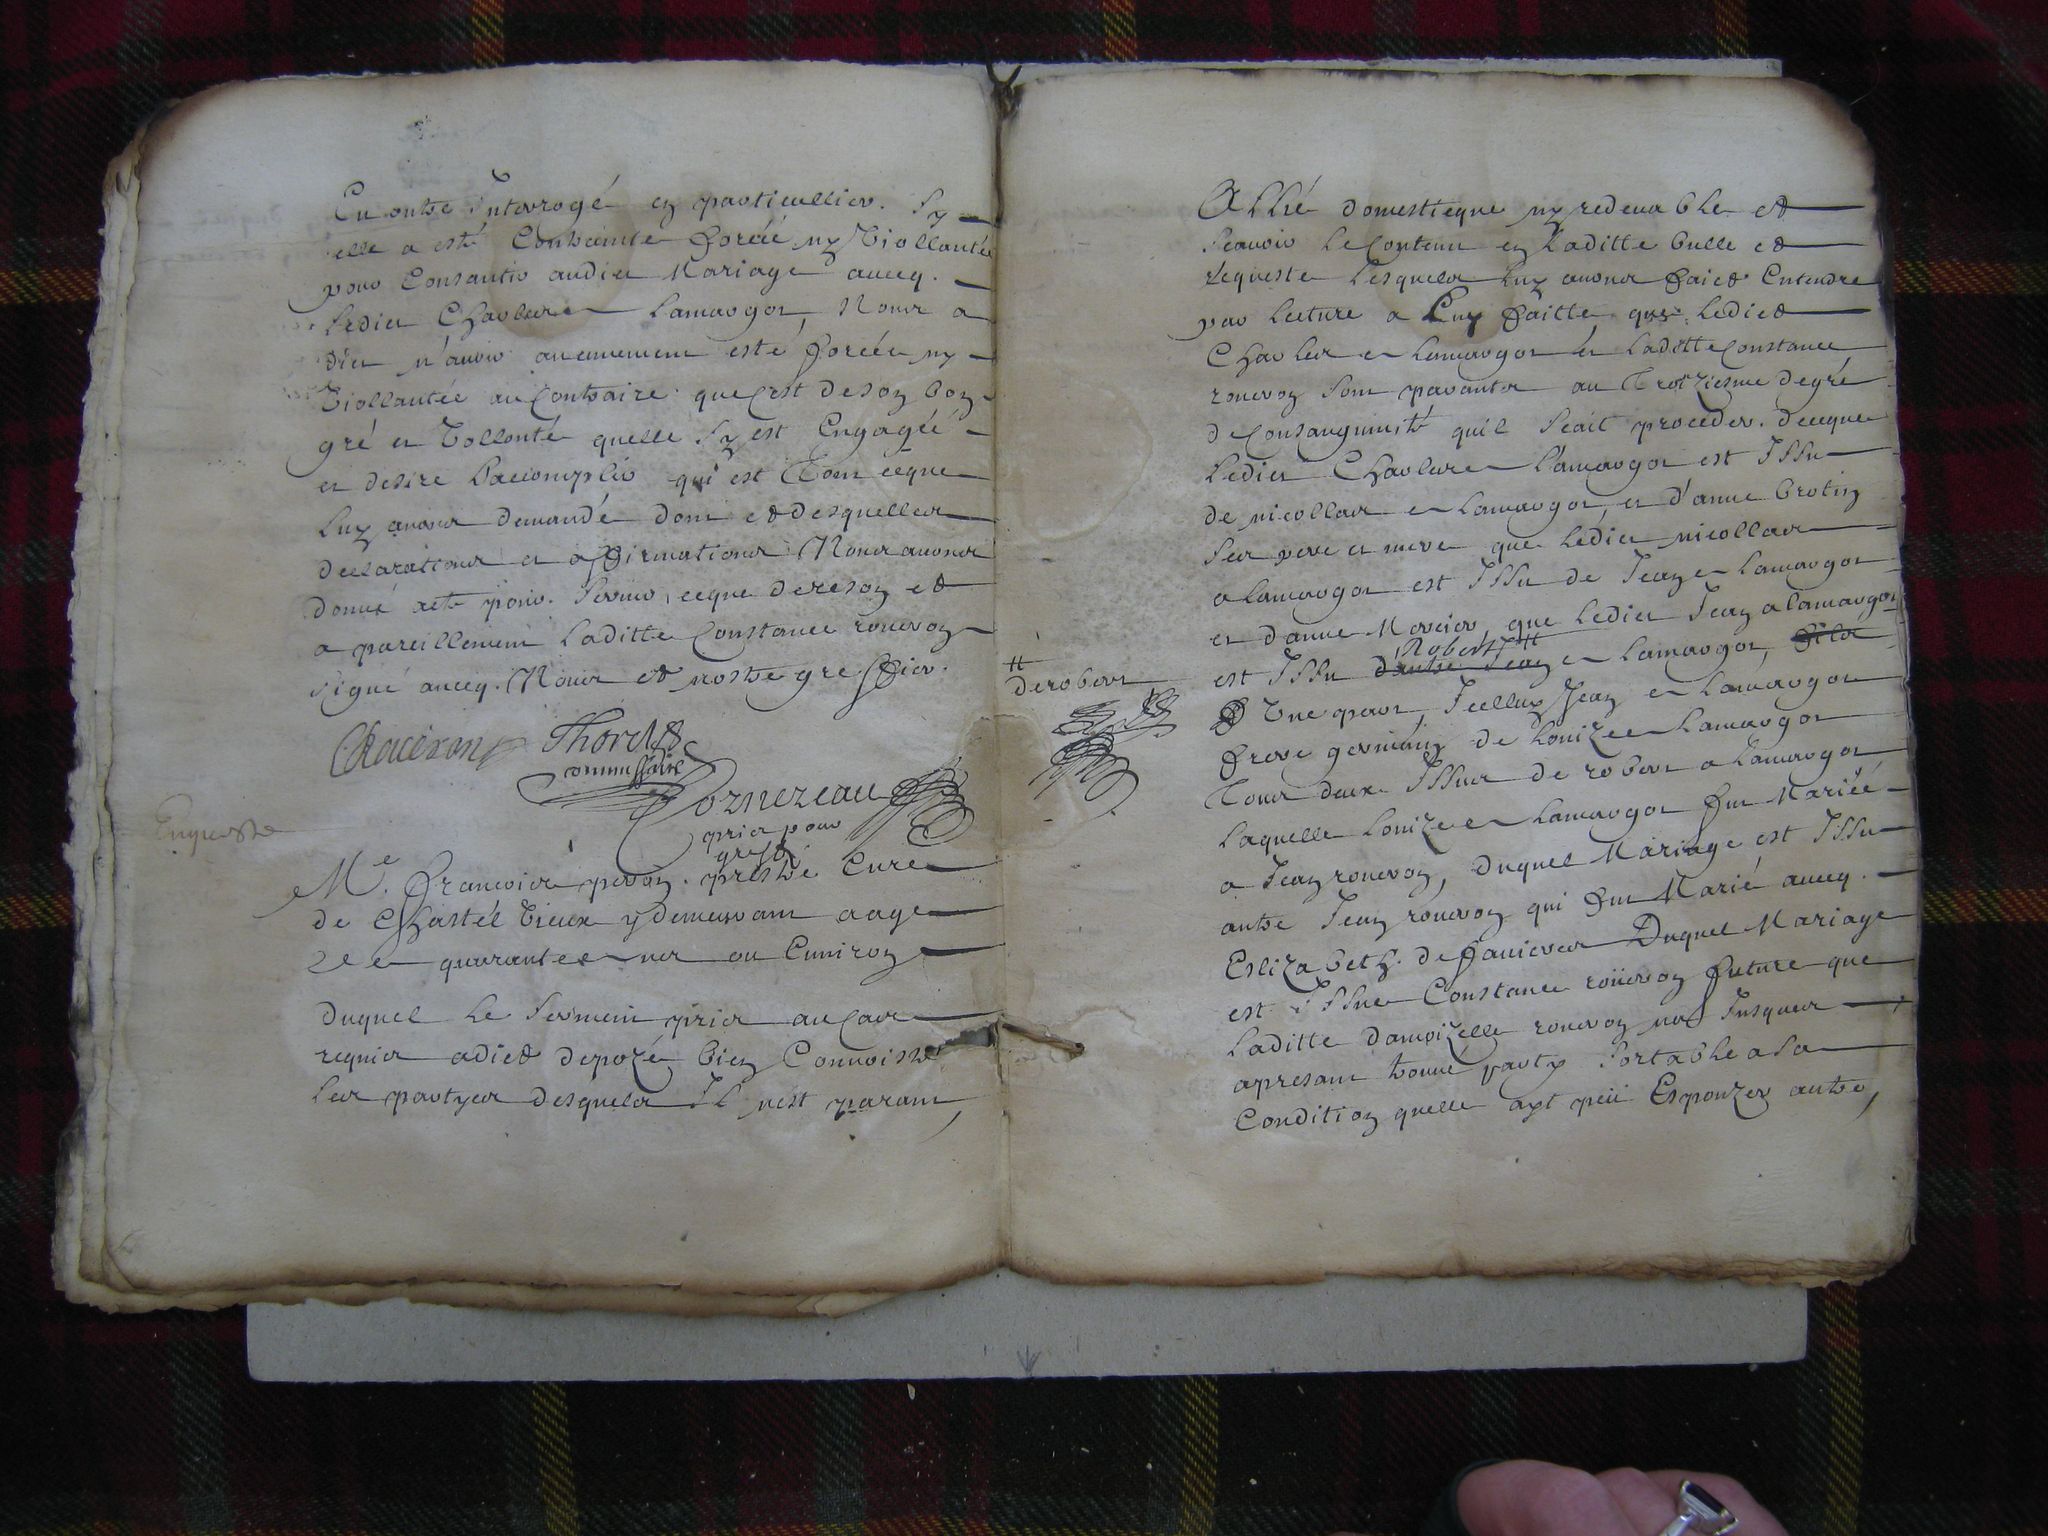 En outre Interrogé en particullier. Sy
elle a esté Contrainte forcée ny Viollantée
pour Consantir audict Mariage avecq.
ledict Charles Lamargot, Nous a
dict n'avoir aucunement esté forcée ny
Viollantée au Contraire que c'est de son bon
gré et Vollonté quelle sy est Engagée
et desire L'accomplir qui est Tout ceque
luy avons demandé dont et desquelles
declarations et affirmations Nous avons
donné acte pour. Servir, ceque de reson et
a pareillement Laditte Constance roueron
signé avecq. Nous et nostre greffier.
CRoueron Thoret
commissaire
Cornezeau
pris pour
greffier
Enqueste
Me. françois peron. prestre Curé
de Chastel Vieux y demeurant aagé
de quarante ans ou Environ
Duquel le Serment pris au Cas
requis a dict depozé bien Connoistre
les partyes desquels Il n'est parant,
Allié domesticque ny redevable et
Scavoir le Contenu en Laditte bulle et
requeste lesquels luy avons faict Entendre
par lecture a Luy faitte que ledict
Charles Lamargot et Laditte Constance
roueron sont parants au Troiziesme degré
de Consanguinité qu'il sçait proceder. de ceque
Ledict Charles Lamargot est Issu
de nicollas Lamargot, et d'anne brotin
ses pere et mere que ledict nicollas
a Lamargot est Issu de Jean Lamargot
et d'anne Mercier, que ledict Jean a lamargot
Robert #
est Issu d'autre Jean Lamargot, fils
# de robert
D'Une part, Icelluy Jean Lamargot
frere germain de Louize Lamargot
Tous deux Issus de robert a Lamargot
Laquelle Louize Lamargot fut Mariée
a Jean roueron, Duquel Mariage est Issu
autre Jean roueron qui fut Marié avecq.
Elizabeth. de Duquel Mariage
est Issue Constance roüeron future que
Laditte damoizelle roueron na Jusques
apresant trouvé party Sortable a Sa
Condition quelle ayt peü Espouzer autre,